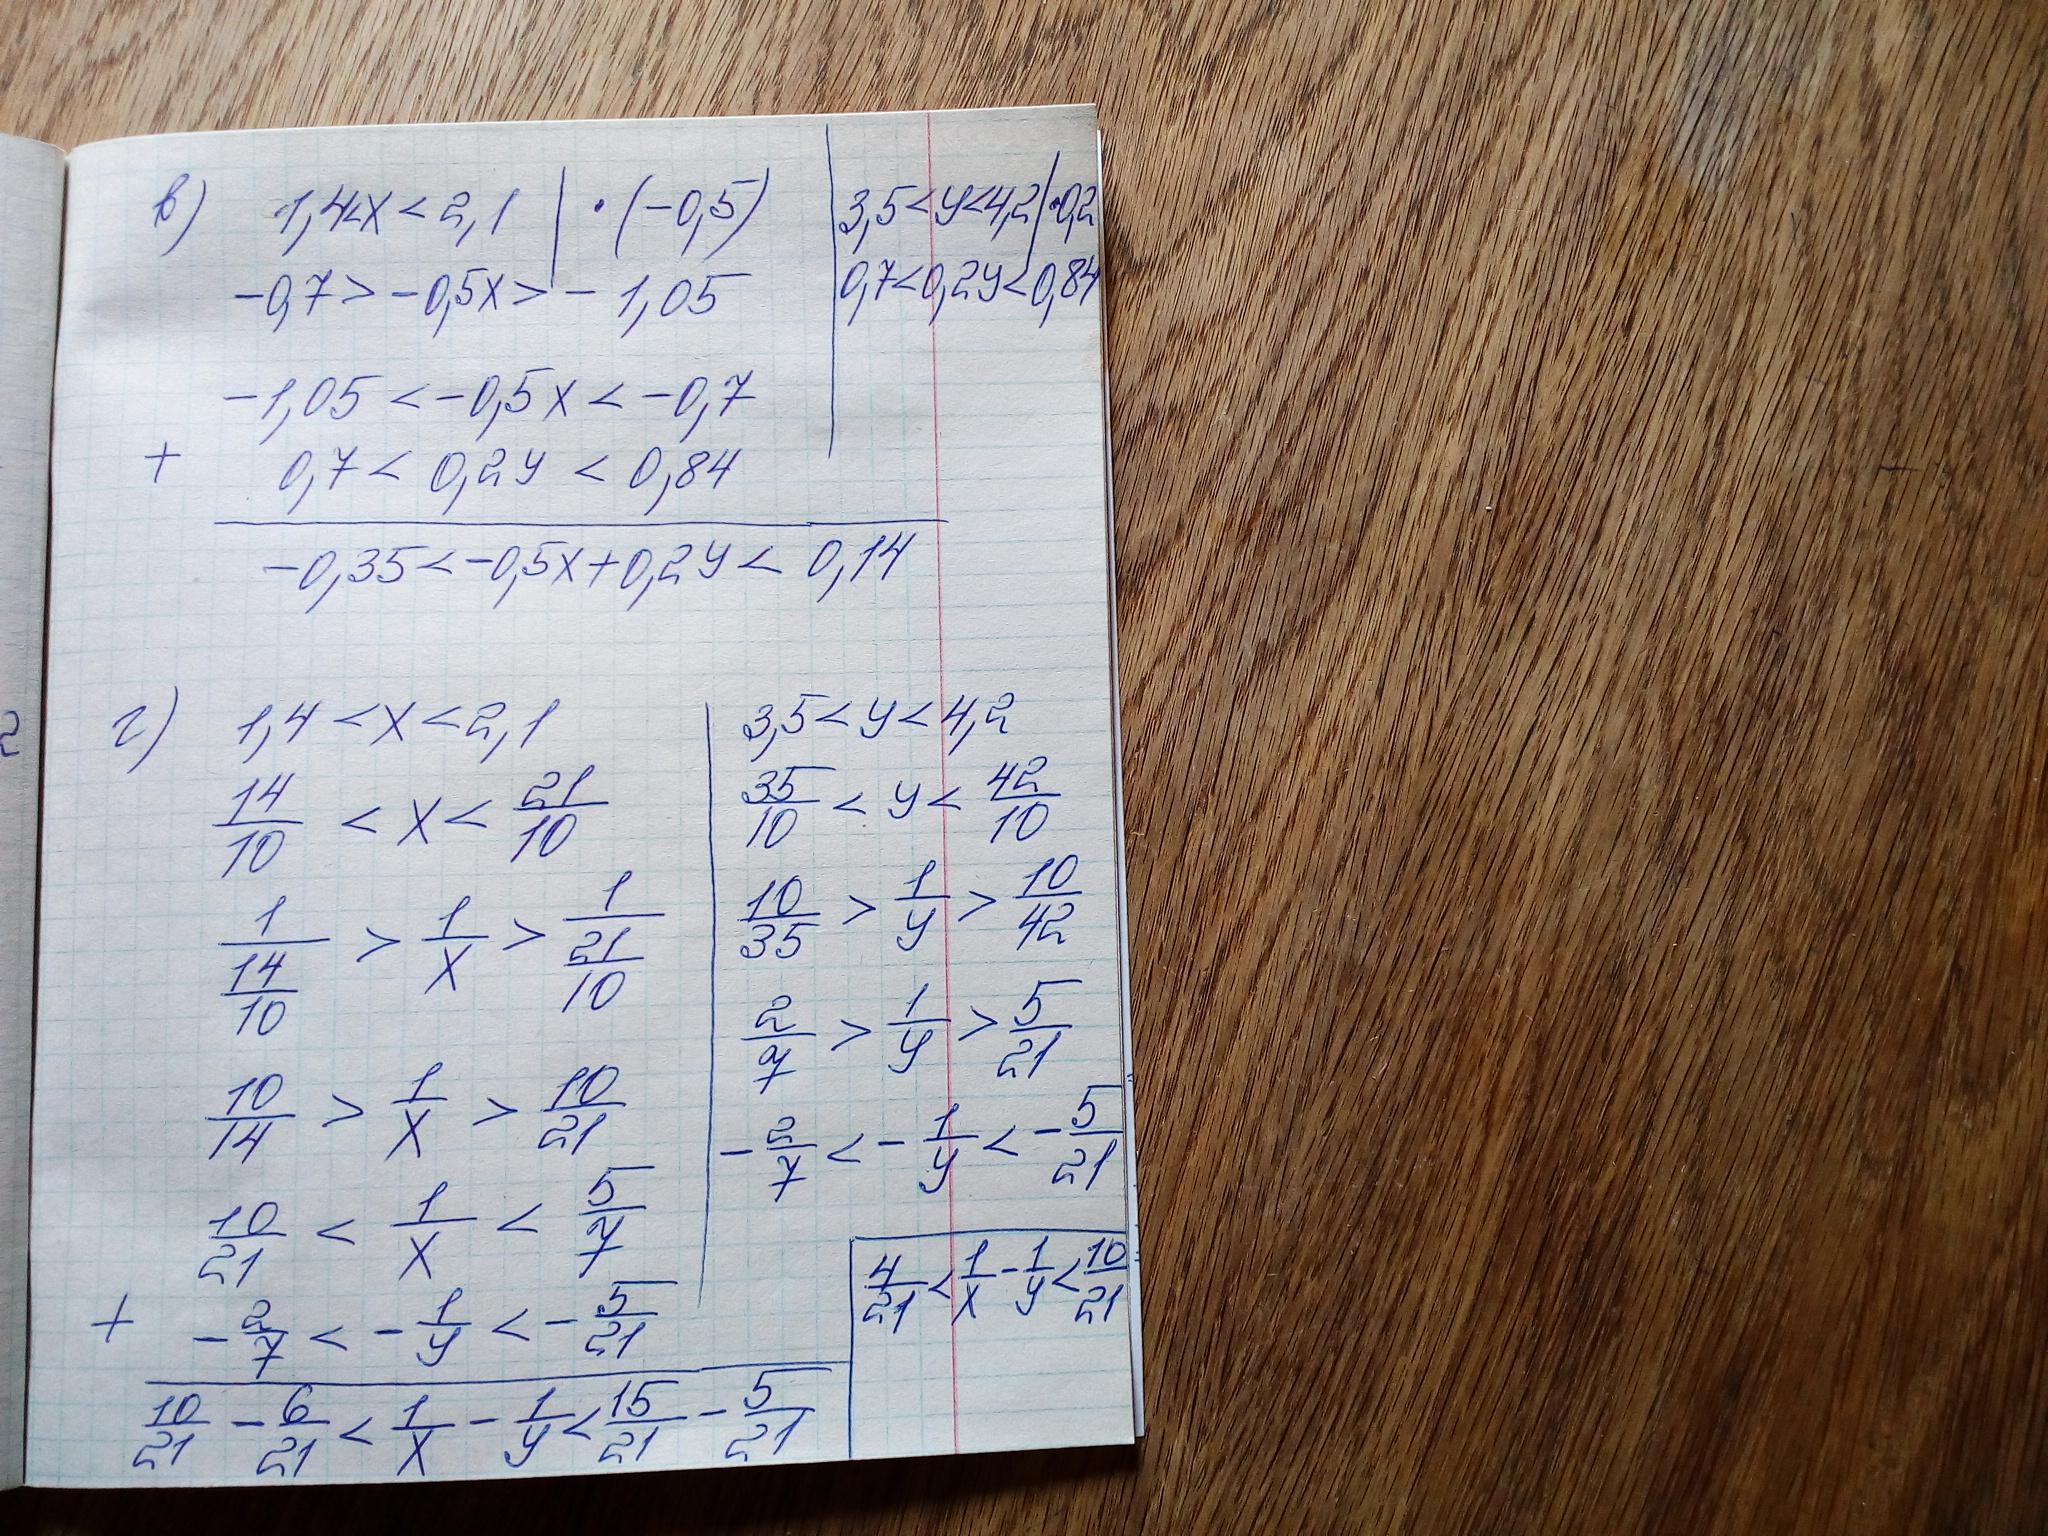 в) 1,4<x<2,1 | · (-0,5)
-0,7 > -0,5x > -1,05
-1,05 < -0,5x < -0,7
+ 0,7 < 0,2y < 0,84
-0,35 < -0,5x + 0,2y < 0,14
3,5 < y < 4,2 | · 0,2
0,7 < 0,2y < 0,84
г) 1,4 < x < 2,1
14/10 < x < 21/10
1/(14/10) > 1/x > 1/(21/10)
10/14 > 1/x > 10/21
10/21 < 1/x < 5/7
+ -2/7 < -1/y < -5/21
10/21 - 6/21 < 1/x - 1/y < 15/21 - 5/21
3,5 < y < 4,2
35/10 < y < 42/10
10/35 > 1/y > 10/42
2/7 > 1/y > 5/21
-2/7 < -1/y < -5/21
4/21 < 1/x - 1/y < 10/21
2